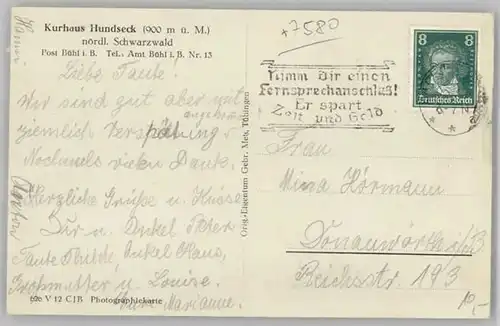 Kurhaus Hundseck (900 m ü. M.)
nördl. Schwarzwald
Post Bühl i. B. Tel.: Amt Bühl i. B. Nr. 13
Liebe Tante!
Wir sind gut aber mit
ziemlich Verspätung
Nochmals vielen Dank.
Herzliche Grüße u. Küsse
Dir u. Onkel Peter
Tante Thilde, Onkel Hans,
Großmutter u. Louise.
Eure Marianne.
620 V 12 CJB Photographiekarte
Orig.-Eigentum Gebr. Metz, Tübingen
+7580
Nimm Dir einen
Fernsprechanschluß!
Er spart
Zeit und Geld
8 8
Deutsches Reich
Frau
Mina Hörmann
Donauwörth a/B
Reichsstr. 193
10,-